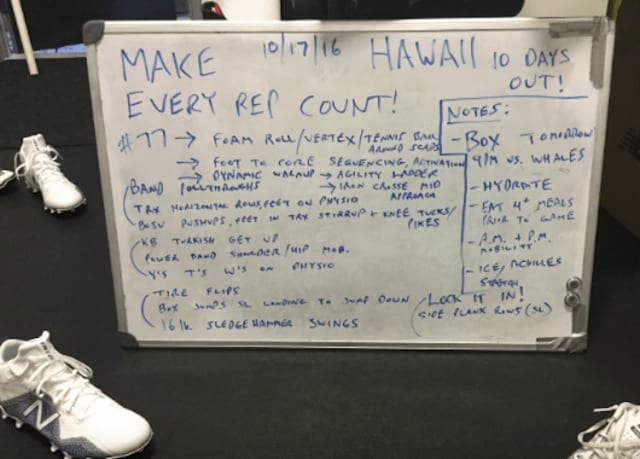 10/17/16 HAWAII 10 DAYS
OUT!
MAKE
EVERY REP COUNT!
#77 → FOAM ROLL/VERTEX/TENNIS BALL
AROUND SCAPS
→ FOOT TO CORE SEQUENCING, ACTIVATION
→ DYNAMIC WARMUP → AGILITY LADDER
→ IRON CROSSE MID
APPROACH
BAND PULLTHROUGHS
TRX HORIZONTAL ROWS, FEET ON PHYSIO
BOSU PUSHUPS, FEET IN TRX STIRRUP + KNEE TUCKS/
PIKES
KB TURKISH GET UP
POWER BAND SHOULDER/HIP MOB.
Y'S T'S W'S ON PHYSIO
TIRE FLIPS
BOX JUMPS SL LANDING TO JUMP DOWN
16 lb. SLEDGEHAMMER SWINGS
NOTES:
- BOX TOMORROW
9PM VS. WHALES
- HYDRATE
- EAT 4+ MEALS
PRIOR TO GAME
- A.M. + P.M.
MOBILITY
- ICE/ACHILLES
STRETCH
LOCK IT IN!
SIDE PLANK ROWS (SL)
N